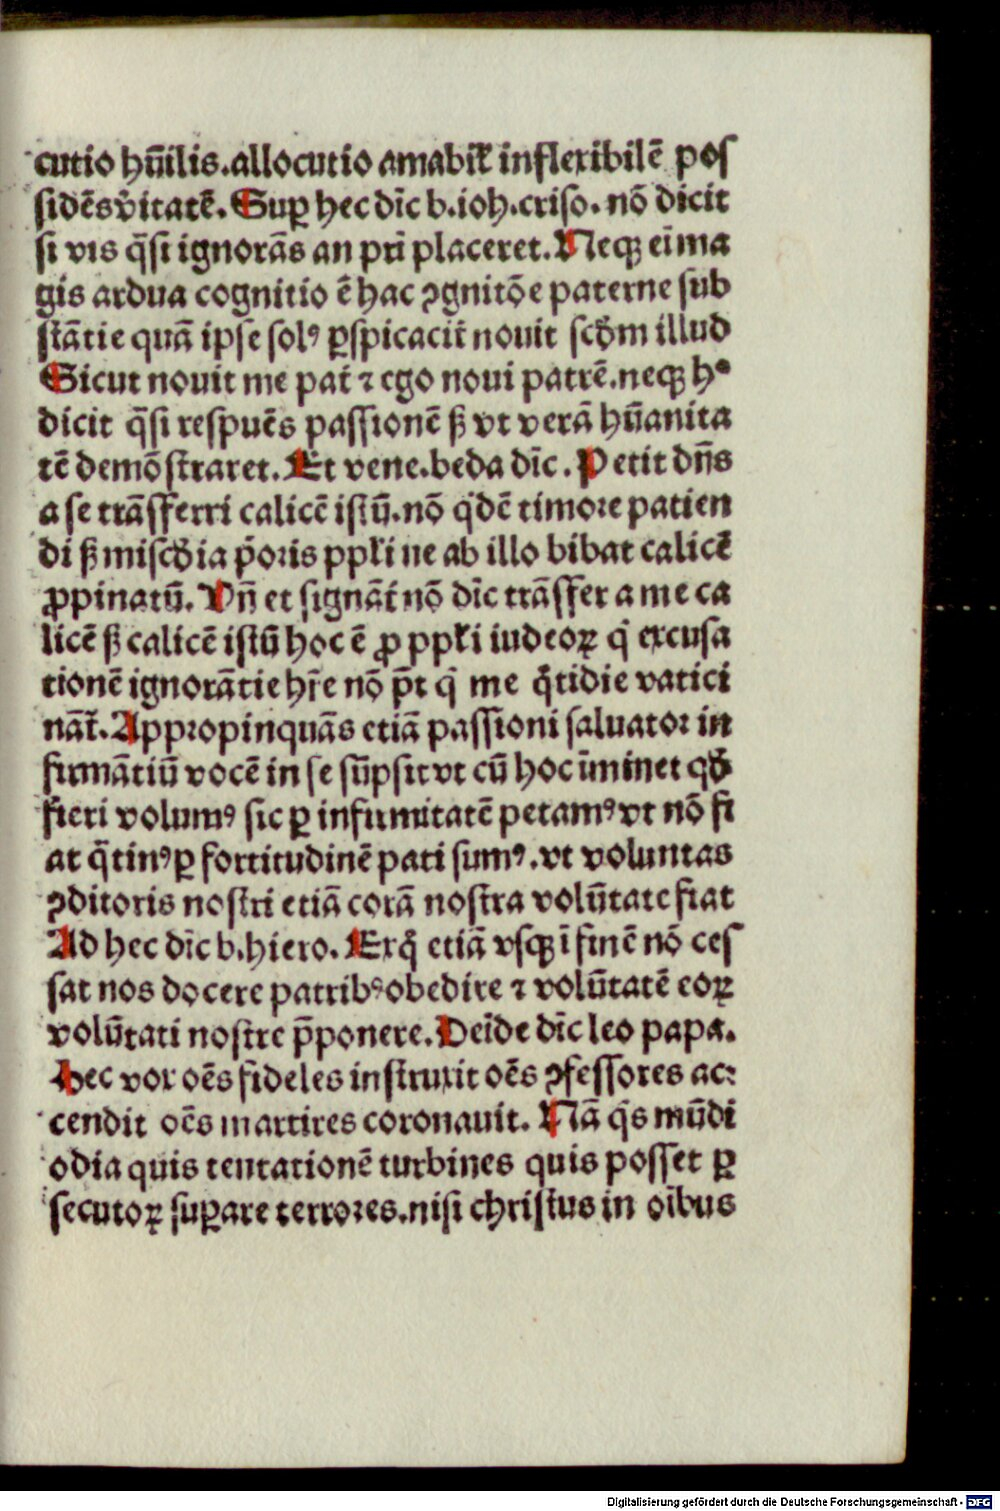 cutio hūilis.allocutio amabiłr inflexibilē pos
sidēs v̓itatē. Suꝑ hec dīc b.ioh.criso. nō dicit
si vis q̄si ignorās an pr̄i placeret. Neqꝫ eī ma
gis ardua cognitio ē hac ꝯgnitōe paterne sub
stātie quā ipse solꝰ ꝑspicacit̓ nouit scd̓m illud
Sicut nouit me pat̓ ⁊ ego noui patrē.neqꝫ hᵒ
dicit q̄si respuēs passionē ß vt verā hūanita
tē demōstraret. Et vene.beda dīc. Petit dn̄s
a se trāsferri calicē istū.nō qͥdē timore patien
di ß mis̄cd̓ia p̓oris ppłi ne ab illo bibat calicē
ꝓpinatū. Vn̄ et signāt̓ nō dīc trāsfer a me ca
licē ß calicē istū hoc ē ꝓ ppłi iudeoꝝ qͥ excusa
tionē ignorātie hr̄e nō p̄t qͥ me q̄tidie vatici
nāt̓. Appropinquās etiā passioni saluator in
firmātiū vocē in se sūpsit vt cū hoc īminet qd̓
fieri volumꝰ sic ꝑ infirmitatē petamꝰ vt nō fi
at q̄tinꝰ ꝑ fortitudinē pati sumꝰ.vt voluntas
ꝯditoris nostri etiā corā nostra volūtate fiat
Ad hec dīc b.hiero. Exq̄ etiā vsqꝫ ī finē nō ces
sat nos docere patribꝰ obedire ⁊ volūtatē eoꝝ
volūtati nostre p̄ponere. Deīde dīc leo papa.
Hec vox oēs fideles instruxit oēs ꝯfessores ac⸗
cendit oēs martires coronauit. Nā qͥs mūdi
odia quis tentationē turbines quis posset ꝑ
secutoꝝ suꝑare terrores.nisi christus in oībus
Digitalisierung gefördert durch die Deutsche Forschungsgemeinschaft - DFG